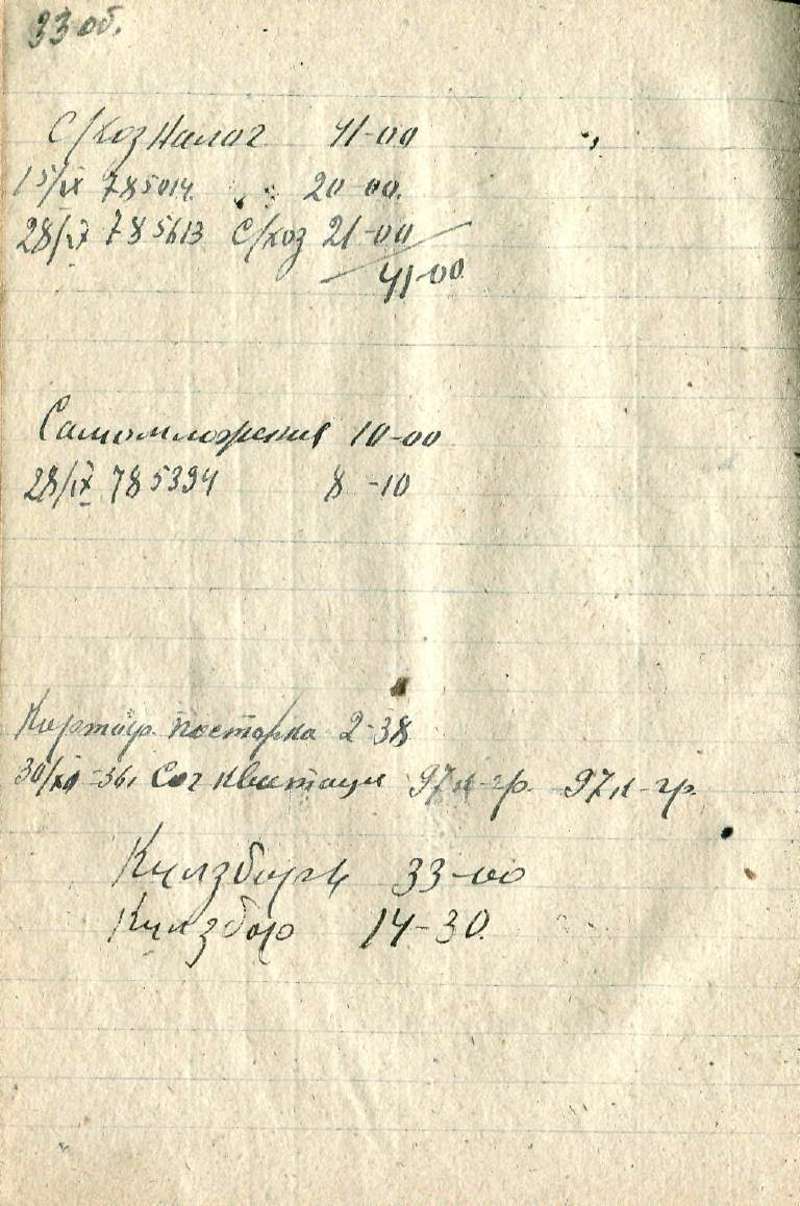 33 об.
С/хоз Налог 41-00
15/IX 785014 " " 20-00.
28/IX 785613 С/хоз 21-00
41-00
Самооблажения 10-00
28/IX 785394 8-10
Картоф. поставка 2-38
30/XII-36, квитации 97 к-гр. 97 к-гр.
Кулзборь 33-00
Кулзбор 14-30